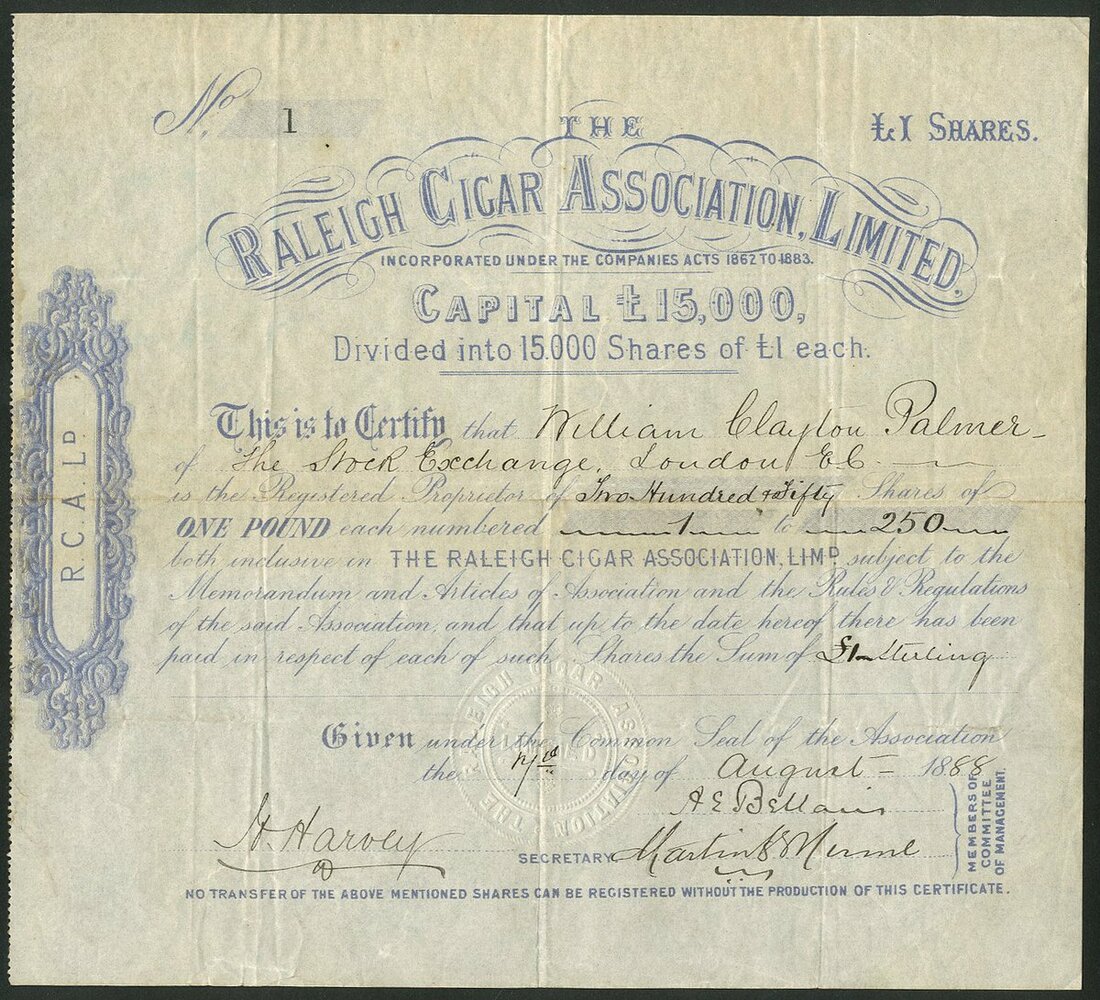 No. 1
£1 SHARES.
THE
RALEIGH CIGAR ASSOCIATION, LIMITED.
INCORPORATED UNDER THE COMPANIES ACTS 1862 TO 1883.
CAPITAL £15,000,
Divided into 15.000 Shares of £1 each.
R.C.A.LD.
This is to Certify that William Clayton Palmer
of The Stock Exchange, London E.C.
is the Registered Proprietor of Two Hundred & Fifty Shares of
ONE POUND each numbered 1 to 250
both inclusive in THE RALEIGH CIGAR ASSOCIATION, LIMD. subject to the
Memorandum and Articles of Association and the Rules & Regulations
of the said Association, and that up to the date hereof there has been
paid in respect of each of such Shares the Sum of £1 Sterling
THE RALEIGH CIGAR ASSOCIATION
Given under the Common Seal of the Association
the day of August 1888
A E Bellairs
H. Harvey
SECRETARY
Martin
MEMBERS OF
COMMITTEE
OF MANAGEMENT.
NO TRANSFER OF THE ABOVE MENTIONED SHARES CAN BE REGISTERED WITHOUT THE PRODUCTION OF THIS CERTIFICATE.